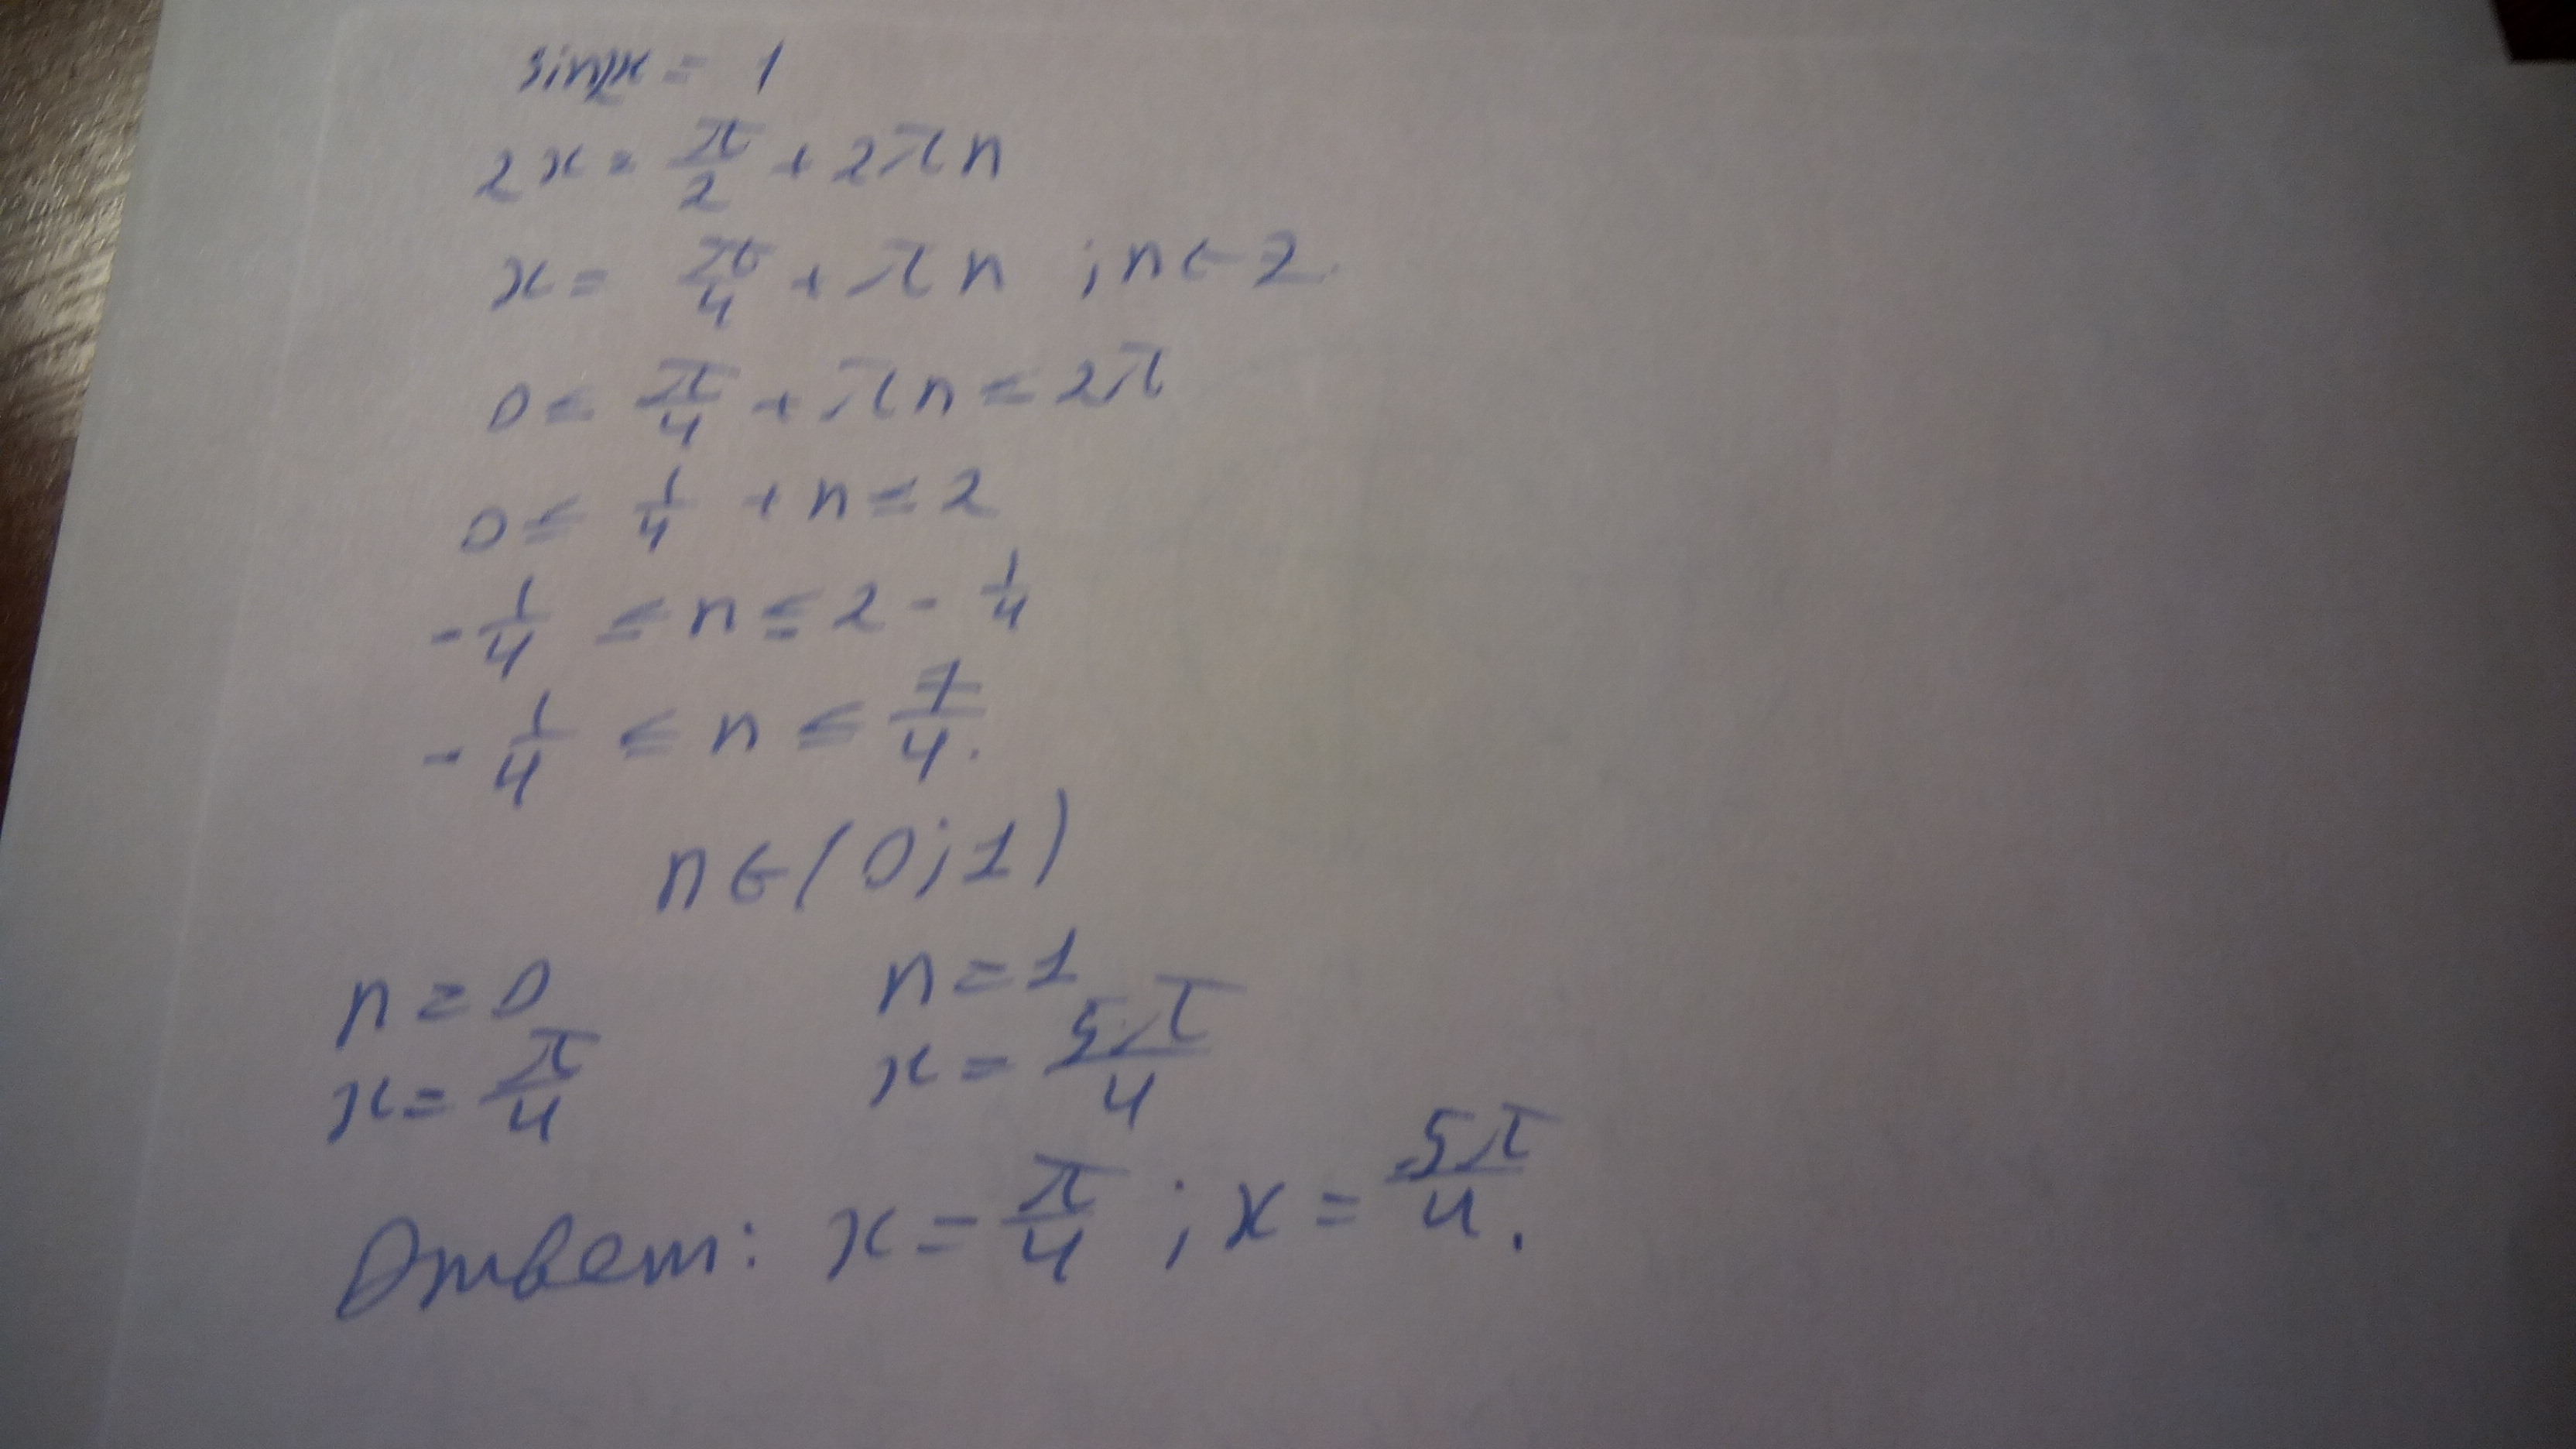 sin2x = 1
2x = π/2 + 2πn
x = π/4 + πn ; n ∈ Z.
0 ≤ π/4 + πn ≤ 2π
0 ≤ 1/4 + n ≤ 2
- 1/4 ≤ n ≤ 2 - 1/4
- 1/4 ≤ n ≤ 7/4.
n ∈ (0; 1)
n = 0 n = 1
x = π/4 x = 5π/4
Ответ: x = π/4 ; x = 5π/4.